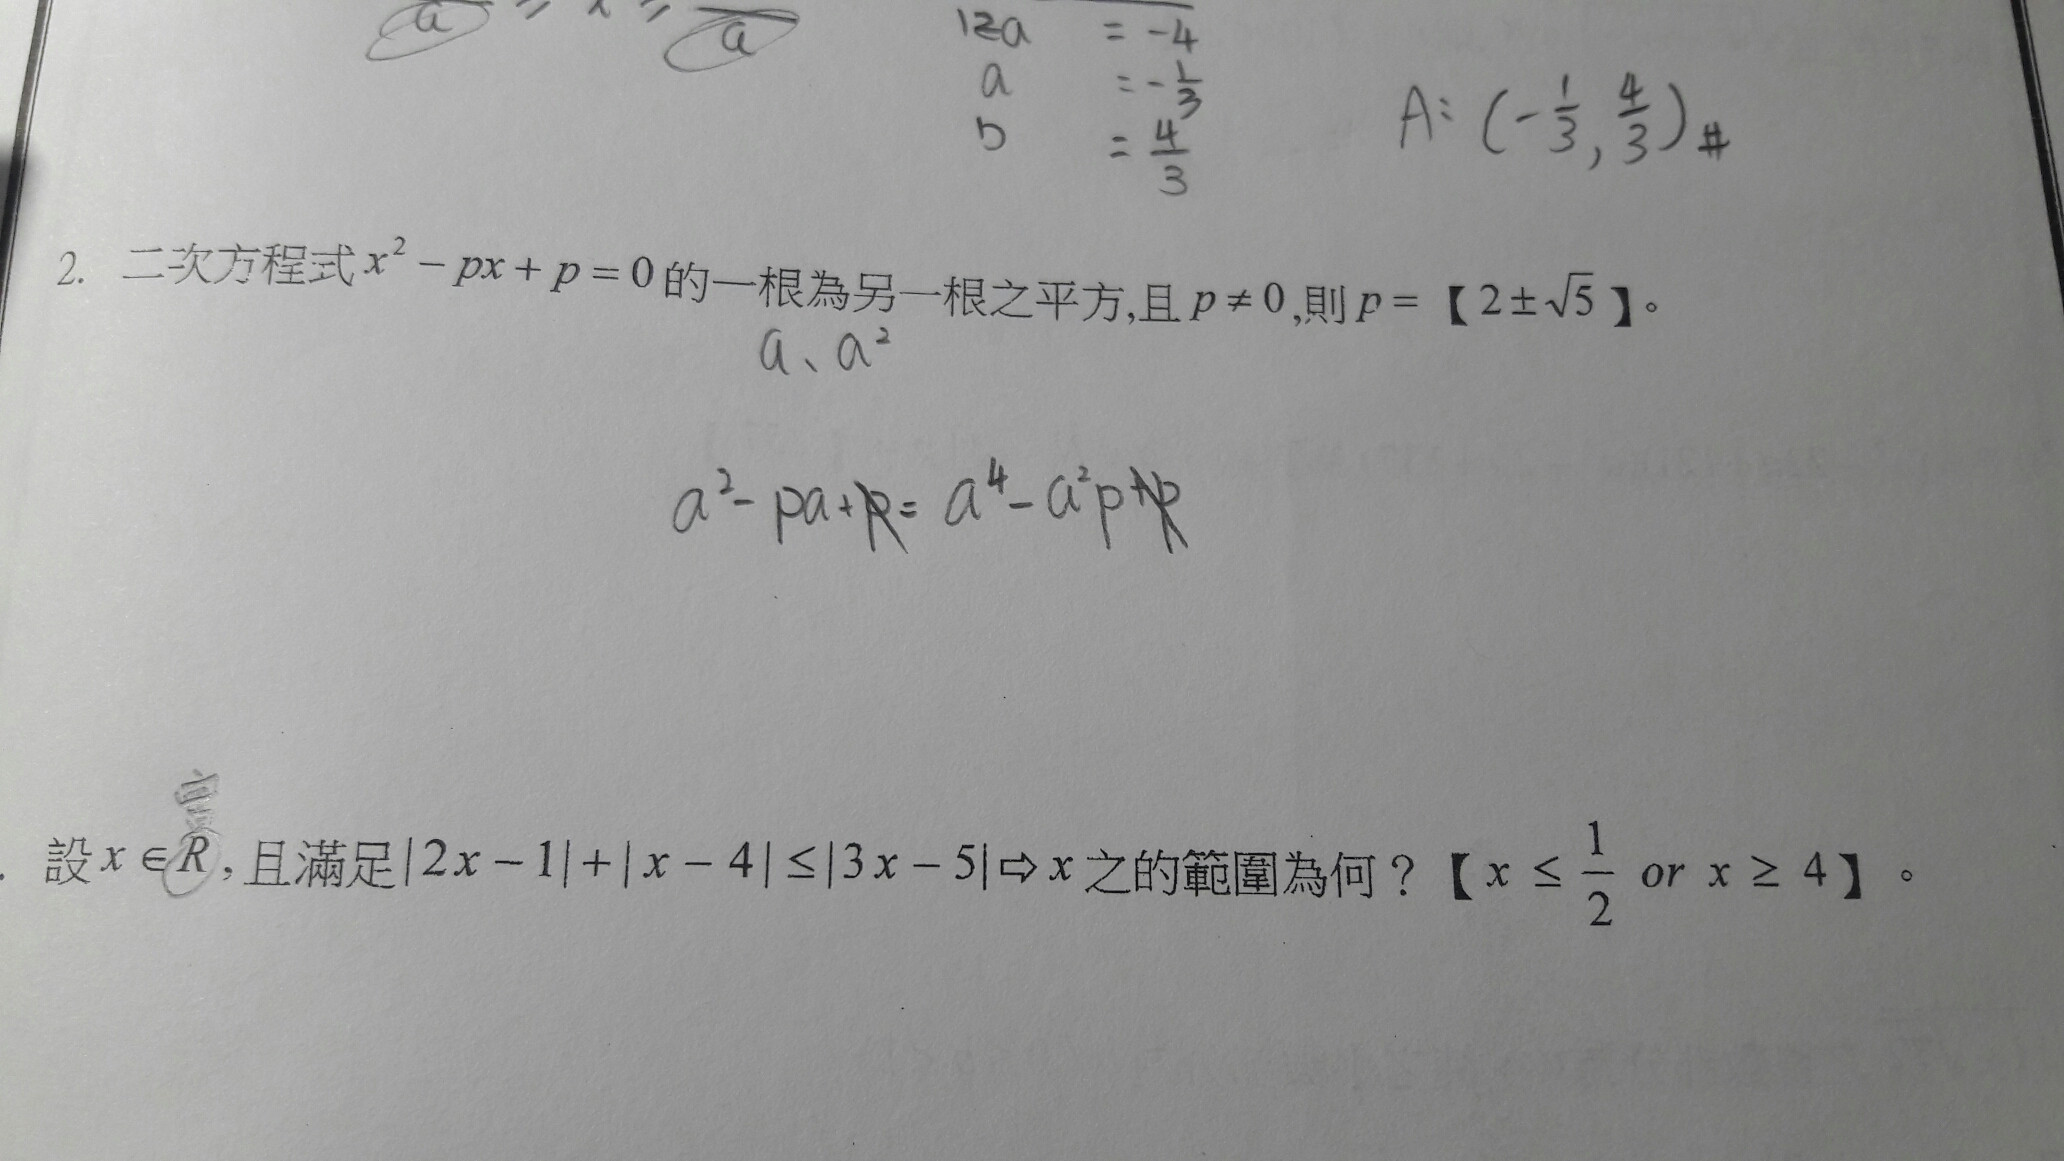 a ≥ x ≥ a
12a = -4
a = -1/3
b = 4/3
A: (-1/3, 4/3)#
2. 二次方程式 x² - px + p = 0 的一根為另一根之平方,且 p ≠ 0 ,則 p = 【 2 ± √5 】。
a、a²
a² - pa + p = a⁴ - a²p + p
設 x ∈ R , 且滿足 |2x - 1| + |x - 4| ≤ |3x - 5| ⇨ x 之的範圍為何？【 x ≤ 1/2 or x ≥ 4 】。